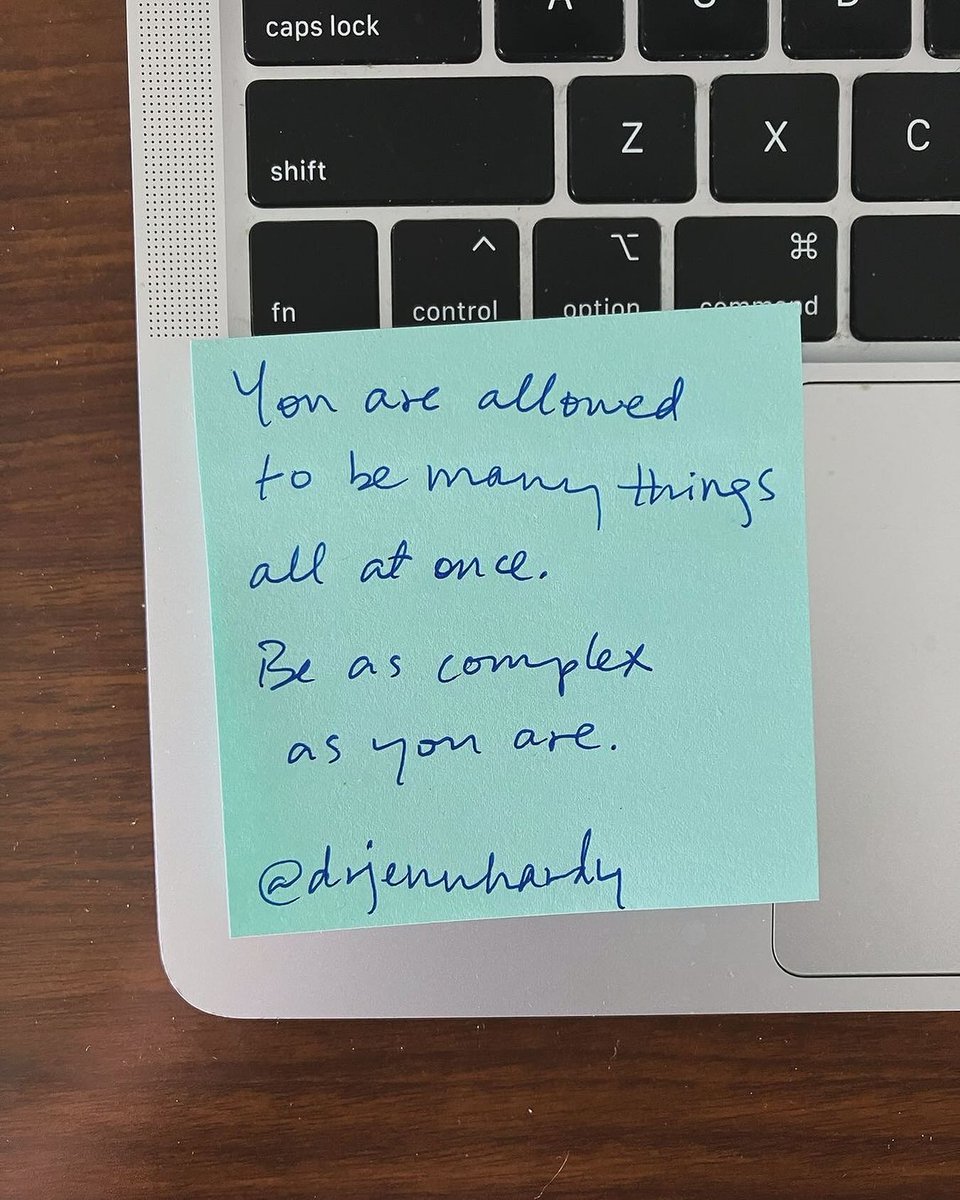 A S D
caps lock
Z X C
shift
^ ⌥ ⌘
fn control option command
You are allowed
to be many things
all at once.
Be as complex
as you are.
@drjennhardy